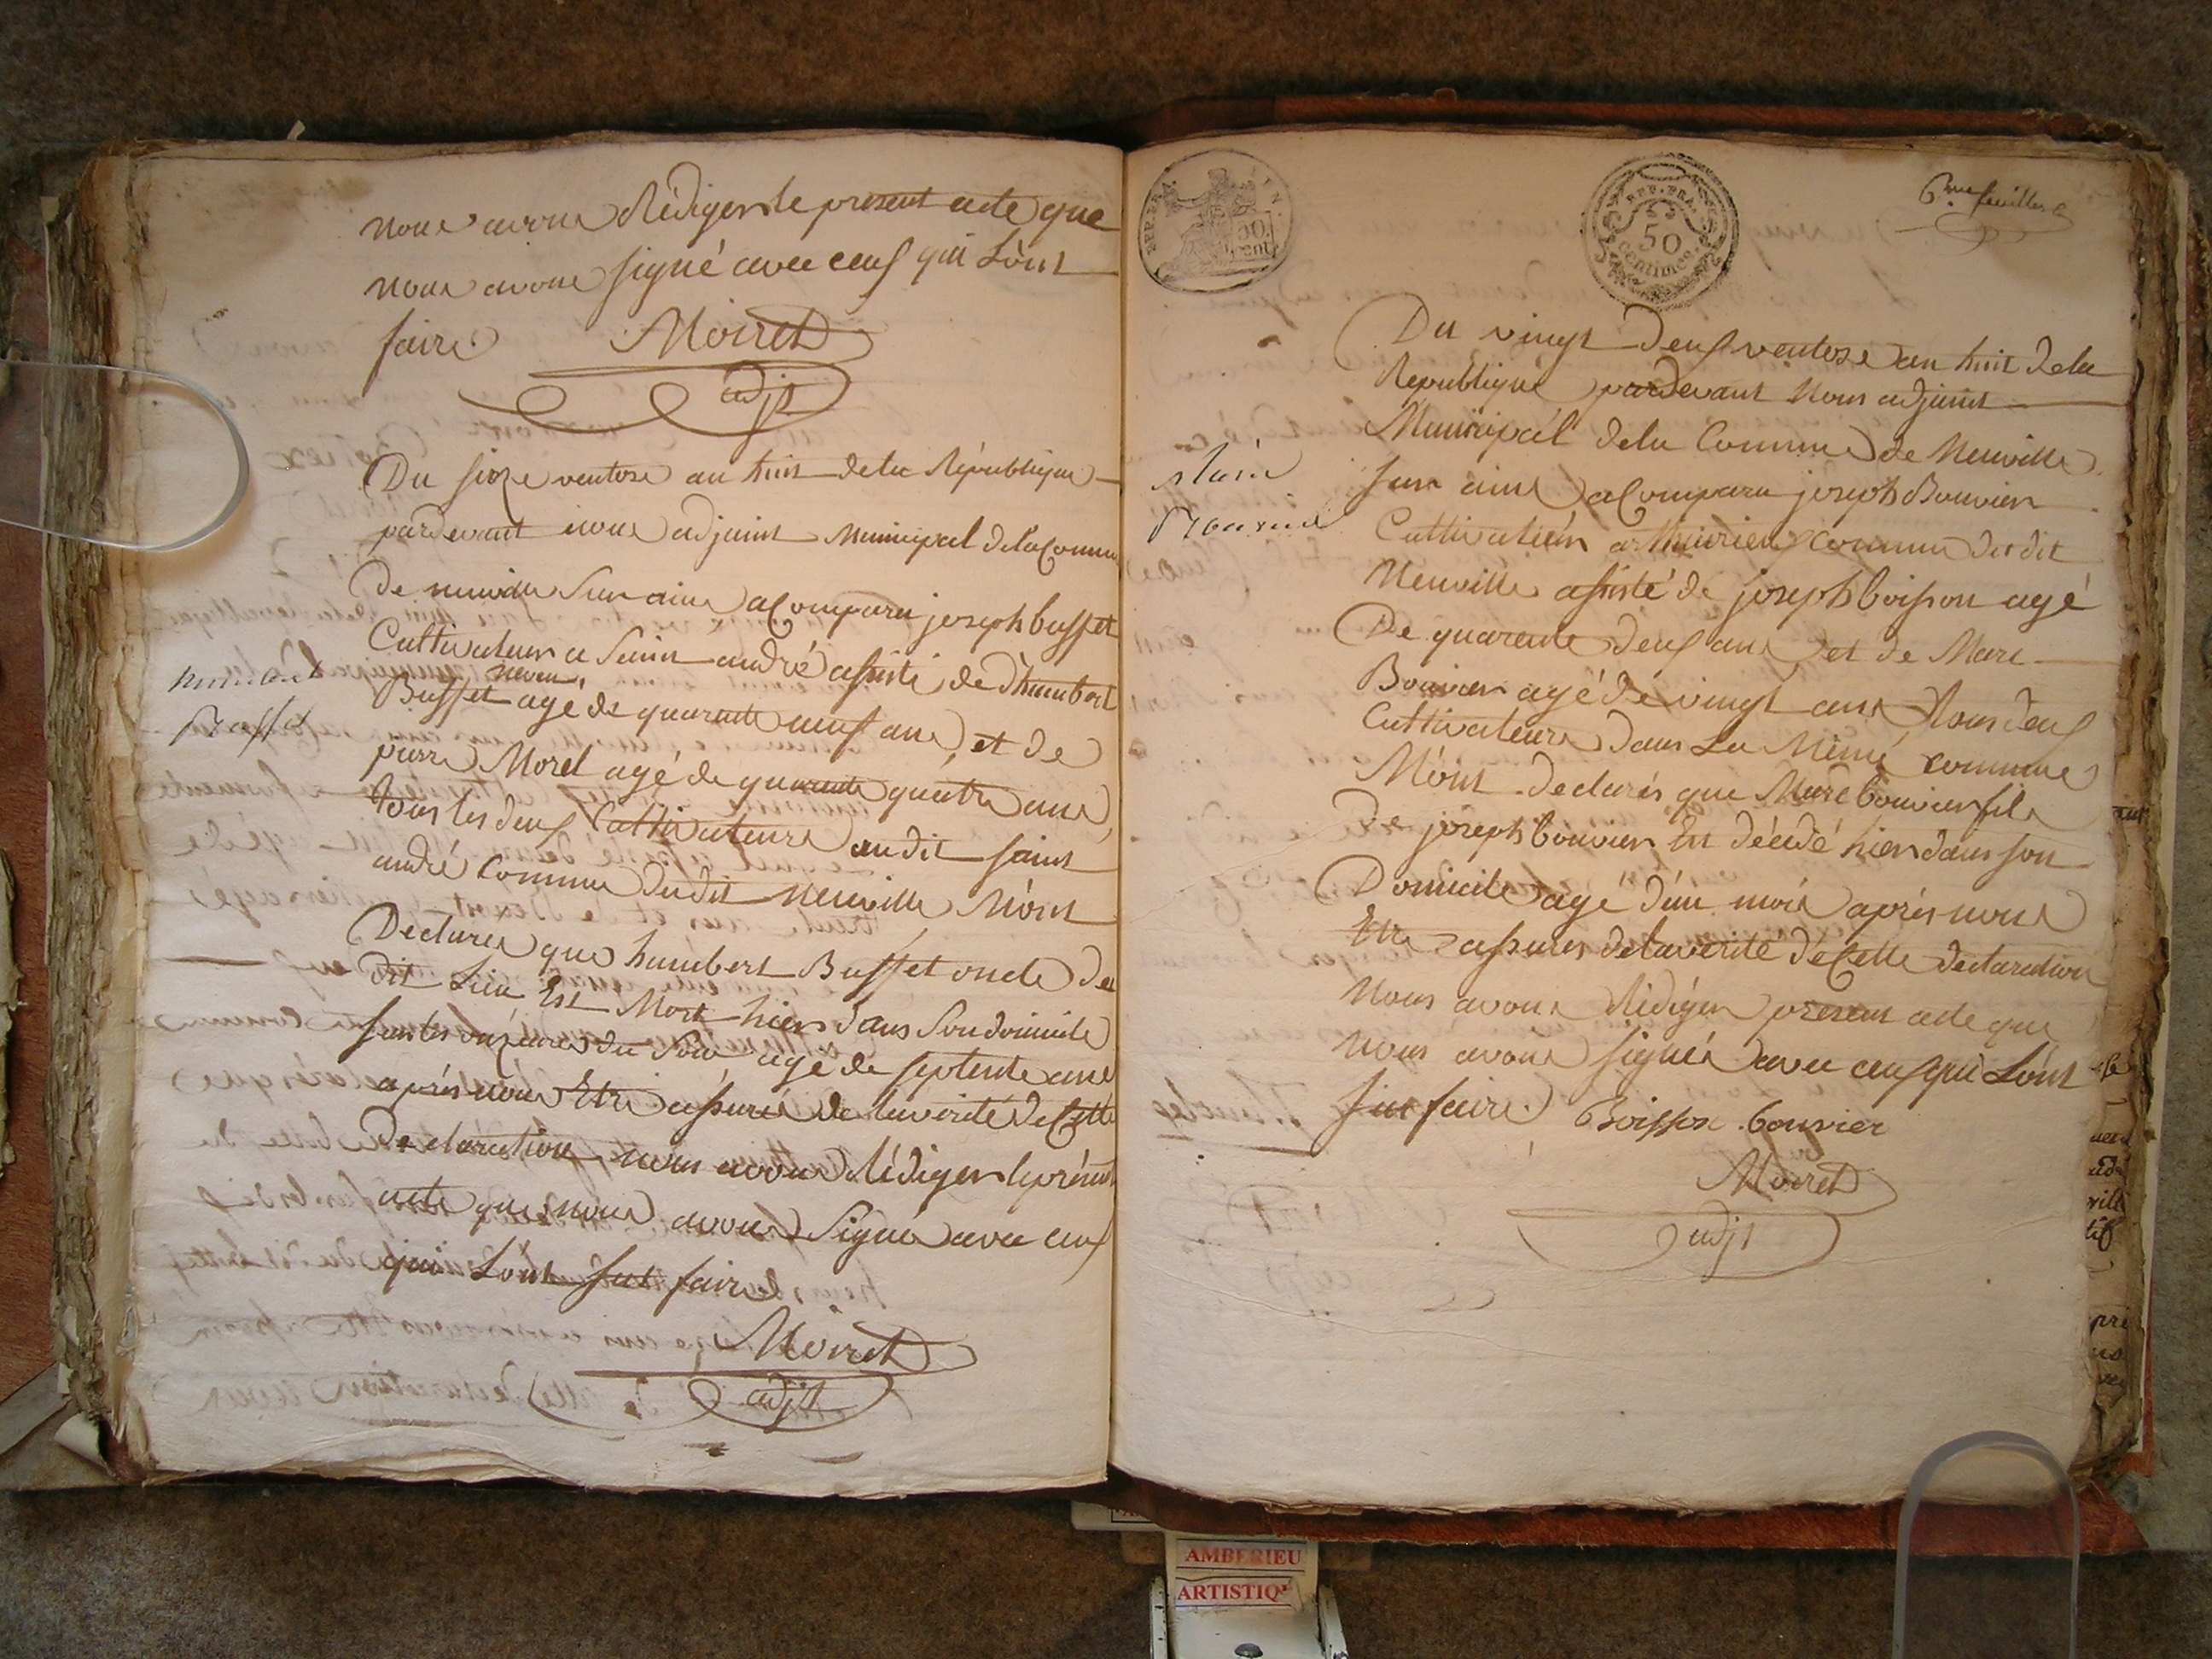 nous avons Rédiger le present acte que
nous avons signé avec ceux qui L'ont
faire Moiret
adjt
Du size ventose an huit de la République
pardevant nous adjoint Municipal de la Commune
De neuville Sur ain a Comparu joseph buffet
Cultivateur a Saint andré assisté de D'humbert
neveu
Buffet agé de quarante neuf ans, et de
pierre Morel agé de quarante quatre ans
tous les deux Cultivateurs au dit saint
andré Commune dudit Neuville M'ont
Declarés que humbert Buffet oncle de
dit Lieu Est Mort hier dans Son domicile
sur les onze heures du Soir agé de septente ans
après nous Etre assurés de la vérité de Cette
Declaration nous avons Rédiger le présent
acte que nous avons Signé avec ceux
qui L'ont sut faire
Moiret
adjt
humbert
Buffet
REP. FRA.
50
cent
REP. FRA.
50
centimes
6me feuillet
Du vingt Deux ventose an huit de la
Republique pardevant Nous adjoint
Municipal de la Commune de Neuville
sur ain a Comparu joseph Bouvier
Cultivateur a Thuirieux Commune du dit
Neuville assisté de joseph boisson agé
De quarente deux ans et de Marc
Bouvier agé de vingt ans tous deux
Cultivateurs dans La Même commune
M'ont Declarés que Marc bouvier fils
De joseph bouvier Est décédé hier dans son
Domicile agé d'un mois après nous
Etre assurés de la vérité de Cette Declaration
Nous avons Rédiger present acte que
Nous avons signés avec ceux qui L'ont
sut faire Boisson bouvier
Moiret
adjt
AMBERIEU
ARTISTIQ